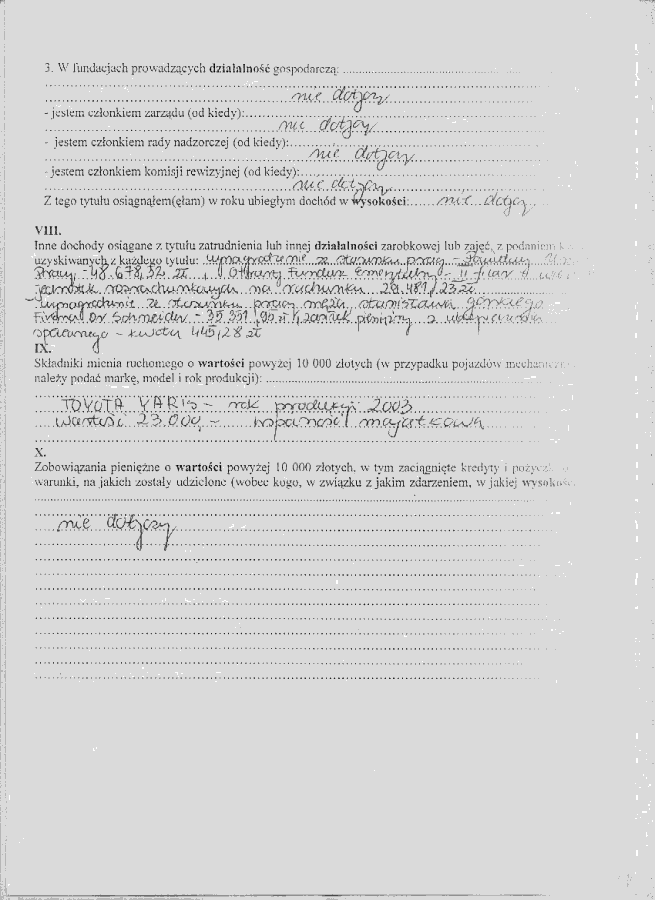 3. W fundacjach prowadzących działalność gospodarczą:
nie dotyczy
- jestem członkiem zarządu (od kiedy):
nie dotyczy
- jestem członkiem rady nadzorczej (od kiedy):
nie dotyczy
- jestem członkiem komisji rewizyjnej (od kiedy):
nie dotyczy
Z tego tytułu osiągnąłem(ęłam) w roku ubiegłym dochód w wysokości: nie dotyczy
VIII.
Inne dochody osiągane z tytułu zatrudnienia lub innej działalności zarobkowej lub zajęć, z podaniem
uzyskiwanych z każdego tytułu: wynagrodzenie ze stosunku pracy -
Pracy - 48.678,32 zł, Otwarty Fundusz Emerytalny - II filar
jednostek rozrachunkowych na rachunku 29.481,23 zł
- wynagrodzenie ze stosunku pracy męża, Stanisława
Firma Dr Schneider - zasiłek pieniężny z ubezpieczenia
społecznego - kwota 445,28 zł
IX.
Składniki mienia ruchomego o wartości powyżej 10 000 złotych (w przypadku pojazdów
należy podać markę, model i rok produkcji):
TOYOTA YARIS - rok produkcji 2003
wartość 23.000,- wspólność majątkowa
X.
Zobowiązania pieniężne o wartości powyżej 10 000 złotych, w tym zaciągnięte kredyty i
warunki, na jakich zostały udzielone (wobec kogo, w związku z jakim zdarzeniem, w jakiej
nie dotyczy